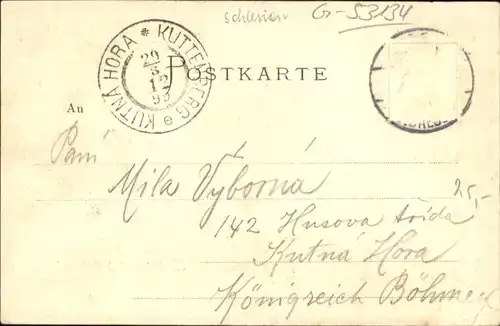 schlesien G-53134
KUTNÁ HORA * KUTTENBERG e
29
3
12
99
POSTKARTE
An
Paní
Mila Výborná
25,-
142 Husova třída
Kutná Hora
Königreich Böhmen